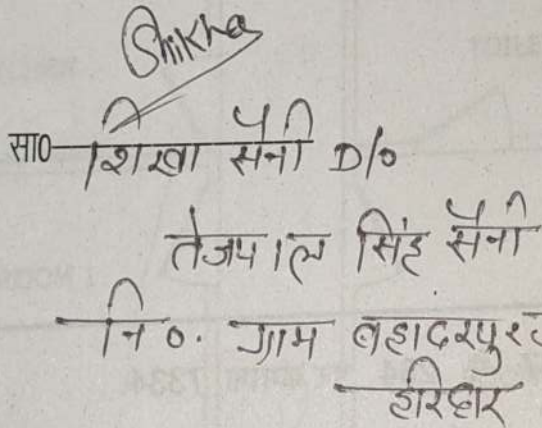 Shikha
सा0 शिखा सैनी D/o
तेजपाल सिंह सैनी
नि०. ग्राम बहादरपुर
हरिद्वार